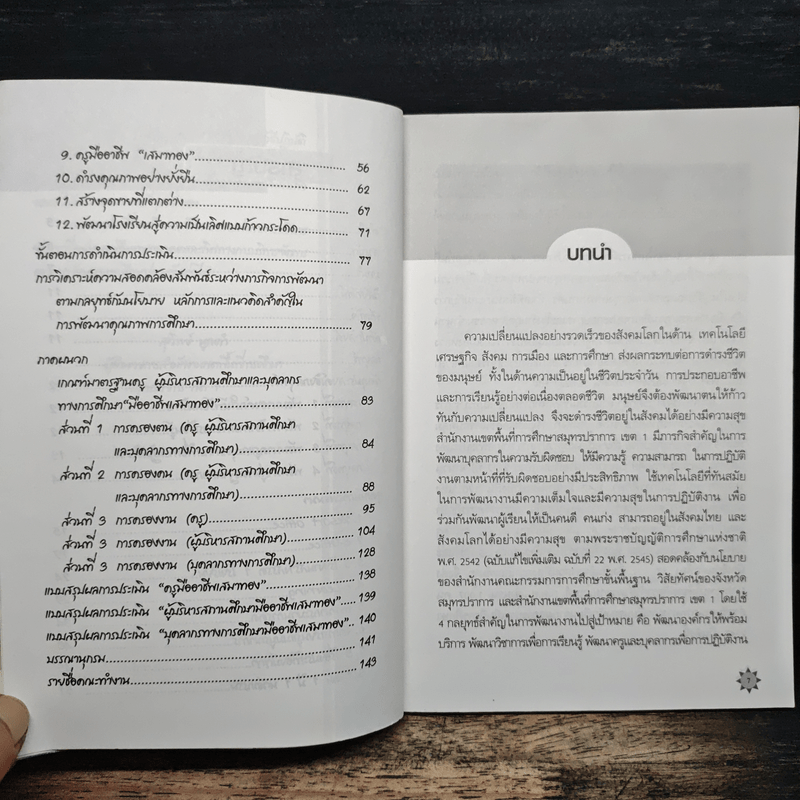 9. ครูมืออาชีพ “เสมาทอง”............................................ 56
10. ดำรงคุณภาพอย่างยั่งยืน............................................ 62
11. สร้างจุดขายที่แตกต่าง............................................ 67
12. พัฒนาโรงเรียนสู่ความเป็นเลิศแบบก้าวกระโดด............ 71
ขั้นตอนการดำเนินการประเมิน............................................ 77
การวิเคราะห์ความสอดคล้องสัมพันธ์ระหว่างภารกิจการพัฒนา
ตามกลยุทธ์กับนโยบาย หลักการและแนวคิดสำคัญใน
การพัฒนาคุณภาพการศึกษา............................................ 79
ภาคผนวก
เกณฑ์มาตรฐานครู ผู้บริหารสถานศึกษาและบุคลากร
ทางการศึกษา“มืออาชีพเสมาทอง”............................ 83
ส่วนที่ 1 การครองตน (ครู ผู้บริหารสถานศึกษา
และบุคลากรทางการศึกษา)............................ 84
ส่วนที่ 2 การครองคน (ครู ผู้บริหารสถานศึกษา
และบุคลากรทางการศึกษา)............................ 88
ส่วนที่ 3 การครองงาน (ครู)............................ 95
ส่วนที่ 3 การครองงาน (ผู้บริหารสถานศึกษา)............ 104
ส่วนที่ 3 การครองงาน (บุคลากรทางการศึกษา)............ 128
แบบสรุปผลการประเมิน “ครูมืออาชีพเสมาทอง”............ 138
แบบสรุปผลการประเมิน “ผู้บริหารสถานศึกษามืออาชีพเสมาทอง”.. 139
แบบสรุปผลการประเมิน “บุคลากรทางการศึกษามืออาชีพเสมาทอง”.. 140
บรรณานุกรม............................................ 141
รายชื่อคณะทำงาน............................................ 143
บทนำ
ความเปลี่ยนแปลงอย่างรวดเร็วของสังคมโลกในด้าน เทคโนโลยี
เศรษฐกิจ สังคม การเมือง และการศึกษา ส่งผลกระทบต่อการดำรงชีวิต
ของมนุษย์ ทั้งในด้านความเป็นอยู่ในชีวิตประจำวัน การประกอบอาชีพ
และการเรียนรู้อย่างต่อเนื่องตลอดชีวิต มนุษย์จึงต้องพัฒนาตนให้ก้าว
ทันกับความเปลี่ยนแปลง จึงจะดำรงชีวิตอยู่ในสังคมได้อย่างมีความสุข
สำนักงานเขตพื้นที่การศึกษาสมุทรปราการ เขต 1 มีภารกิจสำคัญในการ
พัฒนาบุคลากรในความรับผิดชอบ ให้มีความรู้ ความสามารถ ในการปฏิบัติ
งานตามหน้าที่ที่รับผิดชอบอย่างมีประสิทธิภาพ ใช้เทคโนโลยีที่ทันสมัย
ในการพัฒนางานมีความเต็มใจและมีความสุขในการปฏิบัติงาน เพื่อ
ร่วมกันพัฒนาผู้เรียนให้เป็นคนดี คนเก่ง สามารถอยู่ในสังคมไทย และ
สังคมโลกได้อย่างมีความสุข ตามพระราชบัญญัติการศึกษาแห่งชาติ
พ.ศ. 2542 (ฉบับแก้ไขเพิ่มเติม ฉบับที่ 22 พ.ศ. 2545) สอดคล้องกับนโยบาย
ของสำนักงานคณะกรรมการการศึกษาขั้นพื้นฐาน วิสัยทัศน์ของจังหวัด
สมุทรปราการ และสำนักงานเขตพื้นที่การศึกษาสมุทรปราการ เขต 1 โดยใช้
4 กลยุทธ์สำคัญในการพัฒนางานไปสู่เป้าหมาย คือ พัฒนาองค์กรให้พร้อม
บริการ พัฒนาวิชาการเพื่อการเรียนรู้ พัฒนาครูและบุคลากรเพื่อการปฏิบัติงาน
7